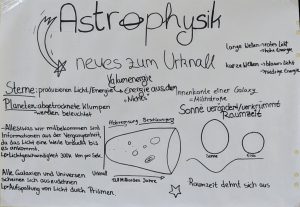 Astrophysik
neues zum Urknall
lange Wellen → rotes Licht
hohe Energie
kurze Wellen → blaues Licht
niedrige Energie
Vakuumenergie
Sterne: produzieren Licht/Energie → Energie aus dem "Nichts"
Planeten: abgebröckelte Klumpen
werden beleuchtet
Innenkante einer Galaxy
= Milchstraße
Sonne verändert/verkrümmt
Raumzeit
- Alles was wir mitbekommen sind
Informationen aus der Vergangenheit,
da das Licht eine Weile braucht bis
es ankommt.
Lichtgeschwindigkeit 300k km pro Sek.
- Alle Galaxien und Universen
scheinen sich auszudehnen
Aufspaltung von Licht durch Prismen
Urknall
13,8 Milliarden Jahre
Sonne
Erde
Raumzeit dehnt sich aus